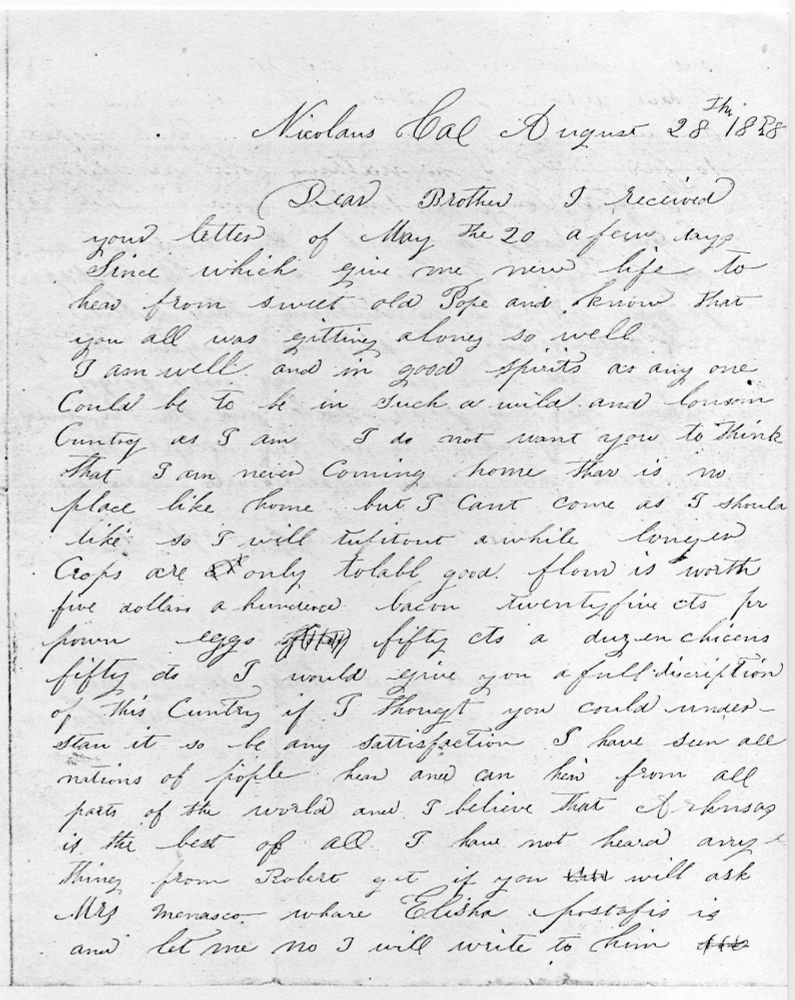 Nicolaus Cal August 28 Th 1858
Dear Brother I received
your letter of May the 20 a few days
Since which give me new life to
hear from sweet old Pope and know that
you all was gitting along so well
I am well and in good spirits as any one
Could be to be in such a wild and lonsom
Cuntry as I am I do not want you to think
that I am never Coming home thar is no
place like home but I Cant come as I should
like so I will tufitout a while longer
Crops are only tolabl good. flour is worth
five dollars a hunderd bacon twentyfive cts pr
poun eggs fifty cts a duzen chicens
fifty cts I would give you a full discription
of this Cuntry if I thougt you could under-
stan it so be any sattisfaction I have seen all
nations of pople hear and can hir from all
parts of the world and I believe that Arkansas
is the best of all I have not heard any
thing from Robert yet if you will ask
Mrs Menasco whare Elisha postofis is
and let me no I will write to him